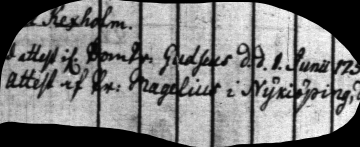 Rexholm.
attest if Domkr: Gudseus D.d. 1. Junii 173
attest if Kr: Nagelius i Nÿkiöping,